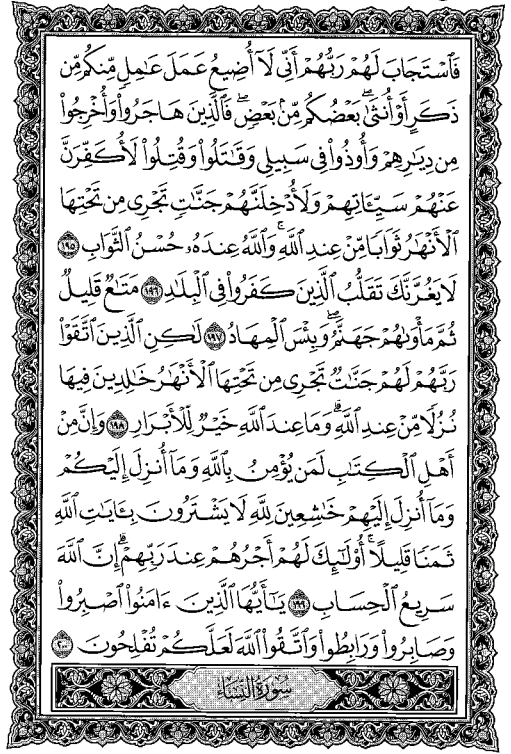 فَٱسْتَجَابَ لَهُمْ رَبُّهُمْ أَنِّى لَآ أُضِيعُ عَمَلَ عَـٰمِلٍ مِّنكُم مِّن
ذَكَرٍ أَوْ أُنثَىٰ ۖ بَعْضُكُم مِّنۢ بَعْضٍ ۖ فَٱلَّذِينَ هَاجَرُوا۟ وَأُخْرِجُوا۟
مِن دِيَـٰرِهِمْ وَأُوذُوا۟ فِى سَبِيلِى وَقَـٰتَلُوا۟ وَقُتِلُوا۟ لَأُكَفِّرَنَّ
عَنْهُمْ سَيِّـَٔاتِهِمْ وَلَأُدْخِلَنَّهُمْ جَنَّـٰتٍ تَجْرِى مِن تَحْتِهَا
ٱلْأَنْهَـٰرُ ثَوَابًا مِّنْ عِندِ ٱللَّهِ ۗ وَٱللَّهُ عِندَهُۥ حُسْنُ ٱلثَّوَابِ ١٩٥
لَا يَغُرَّنَّكَ تَقَلُّبُ ٱلَّذِينَ كَفَرُوا۟ فِى ٱلْبِلَـٰدِ ١٩٦ مَتَـٰعٌ قَلِيلٌ
ثُمَّ مَأْوَىٰهُمْ جَهَنَّمُ ۚ وَبِئْسَ ٱلْمِهَادُ ١٩٧ لَـٰكِنِ ٱلَّذِينَ ٱتَّقَوْا۟
رَبَّهُمْ لَهُمْ جَنَّـٰتٌ تَجْرِى مِن تَحْتِهَا ٱلْأَنْهَـٰرُ خَـٰلِدِينَ فِيهَا
نُزُلًا مِّنْ عِندِ ٱللَّهِ ۗ وَمَا عِندَ ٱللَّهِ خَيْرٌ لِّلْأَبْرَارِ ١٩٨ وَإِنَّ مِنْ
أَهْلِ ٱلْكِتَـٰبِ لَمَن يُؤْمِنُ بِٱللَّهِ وَمَآ أُنزِلَ إِلَيْكُمْ
وَمَآ أُنزِلَ إِلَيْهِمْ خَـٰشِعِينَ لِلَّهِ لَا يَشْتَرُونَ بِـَٔايَـٰتِ ٱللَّهِ
ثَمَنًا قَلِيلًا ۗ أُو۟لَـٰٓئِكَ لَهُمْ أَجْرُهُمْ عِندَ رَبِّهِمْ ۗ إِنَّ ٱللَّهَ
سَرِيعُ ٱلْحِسَابِ ١٩٩ يَـٰٓأَيُّهَا ٱلَّذِينَ ءَامَنُوا۟ ٱصْبِرُوا۟
وَصَابِرُوا۟ وَرَابِطُوا۟ وَٱتَّقُوا۟ ٱللَّهَ لَعَلَّكُمْ تُفْلِحُونَ ٢٠٠
سُورَةُ النِّسَاءِ